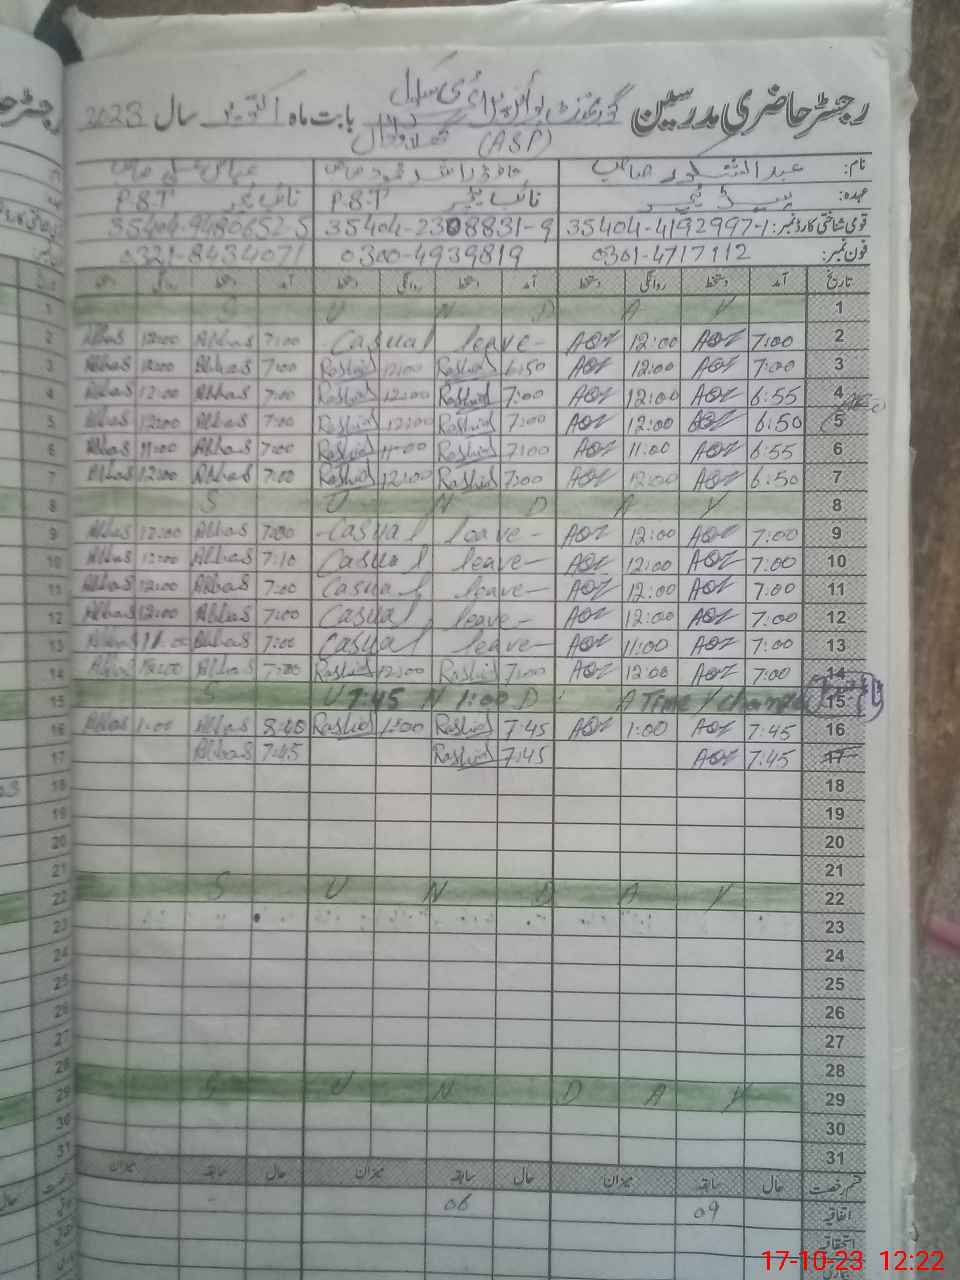 رجسٹر حاضری مدرسین گورنمنٹ بوائز پرائمری سکول بابت ماہ اکتوبر سال 2023
(ASP)
نام: عبدالشکور صاحب
عہدہ: ہیڈ ٹیچر نائب ٹیچر P.S.T نائب ٹیچر P.S.T
قومی شناختی کارڈ نمبر: 35404-4192997-1 35404-2308831-9 35404-9480652-5
فون نمبر: 0301-4717112 0300-4939819 0321-8434071
تاریخ آمد دستخط روانگی دستخط آمد دستخط روانگی دستخط آمد دستخط روانگی دستخط
S U N D A Y 1
Abbas 12:00 Abbas 7:00 Casual leave 12:00 7:00 2
Abbas 12:00 Abbas 7:00 Rashid 12:00 Rashid 6:50 12:00 7:00 3
Abbas 12:00 Abbas 7:00 Rashid 12:00 Rashid 7:00 12:00 6:55 4
Abbas 12:00 Abbas 7:00 Rashid 12:00 Rashid 7:00 12:00 6:50 5
Abbas 11:00 Abbas 7:00 Rashid 11:00 Rashid 7:00 11:00 6:55 6
Abbas 12:00 Abbas 7:00 Rashid 12:00 Rashid 7:00 12:00 6:50 7
S U N D A Y 8
Abbas 12:00 Abbas 7:00 Casual leave 12:00 7:00 9
Abbas 12:00 Abbas 7:10 Casual leave 12:00 7:00 10
Abbas 12:00 Abbas 7:00 Casual leave 12:00 7:00 11
Abbas 12:00 Abbas 7:00 Casual leave 12:00 7:00 12
Abbas 11:00 Abbas 7:00 Casual leave 11:00 7:00 13
Abbas 12:00 Abbas 7:00 Rashid 12:00 Rashid 7:00 12:00 7:00 14
S U 7:45 N 1:00 D A Time Y change 15
Abbas 1:00 Abbas 8:40 Rashid 1:00 Rashid 7:45 1:00 7:45 16
Abbas 7:45 Rashid 7:45 7:45 17
18
19
20
21
S U N D A Y 22
23
24
25
26
27
28
S U N D A Y 29
30
31
قسم رخصت حال سابقہ میزان حال سابقہ میزان حال سابقہ میزان
اتفاقیہ 09 06 -
استحقاقیہ
17-10-23 12:22